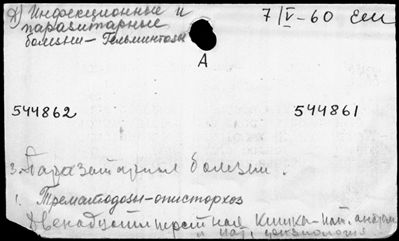 А) Инфекционные и 7/V-60 Еми
паразитарные
болезни - Гельминтозы
А
544862 544861
3. Паразитарные болезни.
1. Трематодозы-описторхоз
Двенадцатиперстная кишка-пат. анатом.
и пат. физиология